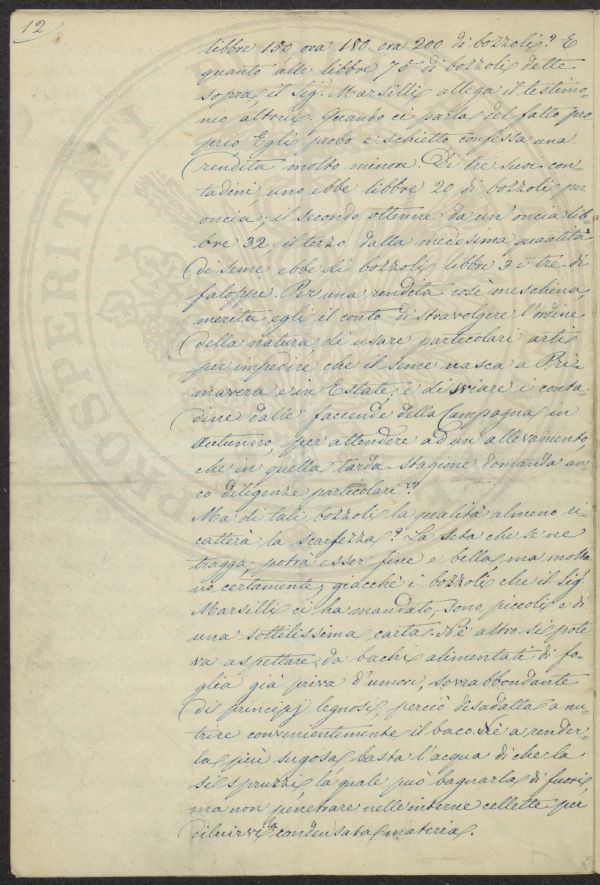 12
libbre 150 ora 180 ora 200 di bozzoli? E
quanto alle libbre 75 di bozzoli dette
sopra, il Sig.r Marsilli allega il testimo-
nio altrui. Quando ei parla del fatto pro
prio Egli probo e schietto confessa una
rendita molto minore. Di tre suoi con-
tadini uno ebbe libbre 20 di bozzoli per
oncia, il secondo ottenne da un'oncia lib-
bre 32 il terzo dalla medesima quantità
di seme ebbe di bozzoli libbre 3 e tre di
faloppe. Per una rendita così meschina,
merita egli il conto di stravolgere l'ordine
della natura di usare particolari arti
per impedire che il seme nasca a Pri-
mavera e in Estate, e disviare i conta
dini dalle faccende della Campagna in
Autunno, per attendere ad un allevamento,
che in quella tarda stagione domanda an-
co diligenze particolari?
Ma di tali bozzoli la qualità almeno ri-
catterà la scarsezza? La seta che se ne
tragga, potrà esser fine e bella, ma molta
no certamente, giacchè i bozzoli che il Sig.r
Marsilli ci ha mandato, sono piccoli e di
una sottilissima carta. Nè altro si pote
va aspettare da bachi alimentati di fo-
glia già priva d'umori, sovrabbondante
di principj legnosi, perciò disadatta a nu
trire convenientemente il baco. Nè a render-
la più sugosa basta l'acqua di che la
si spruzzi la quale può bagnarla di fuori,
ma non penetrare nelle interne cellette per
diluirvi la condensata materia.
PROSPERITATI